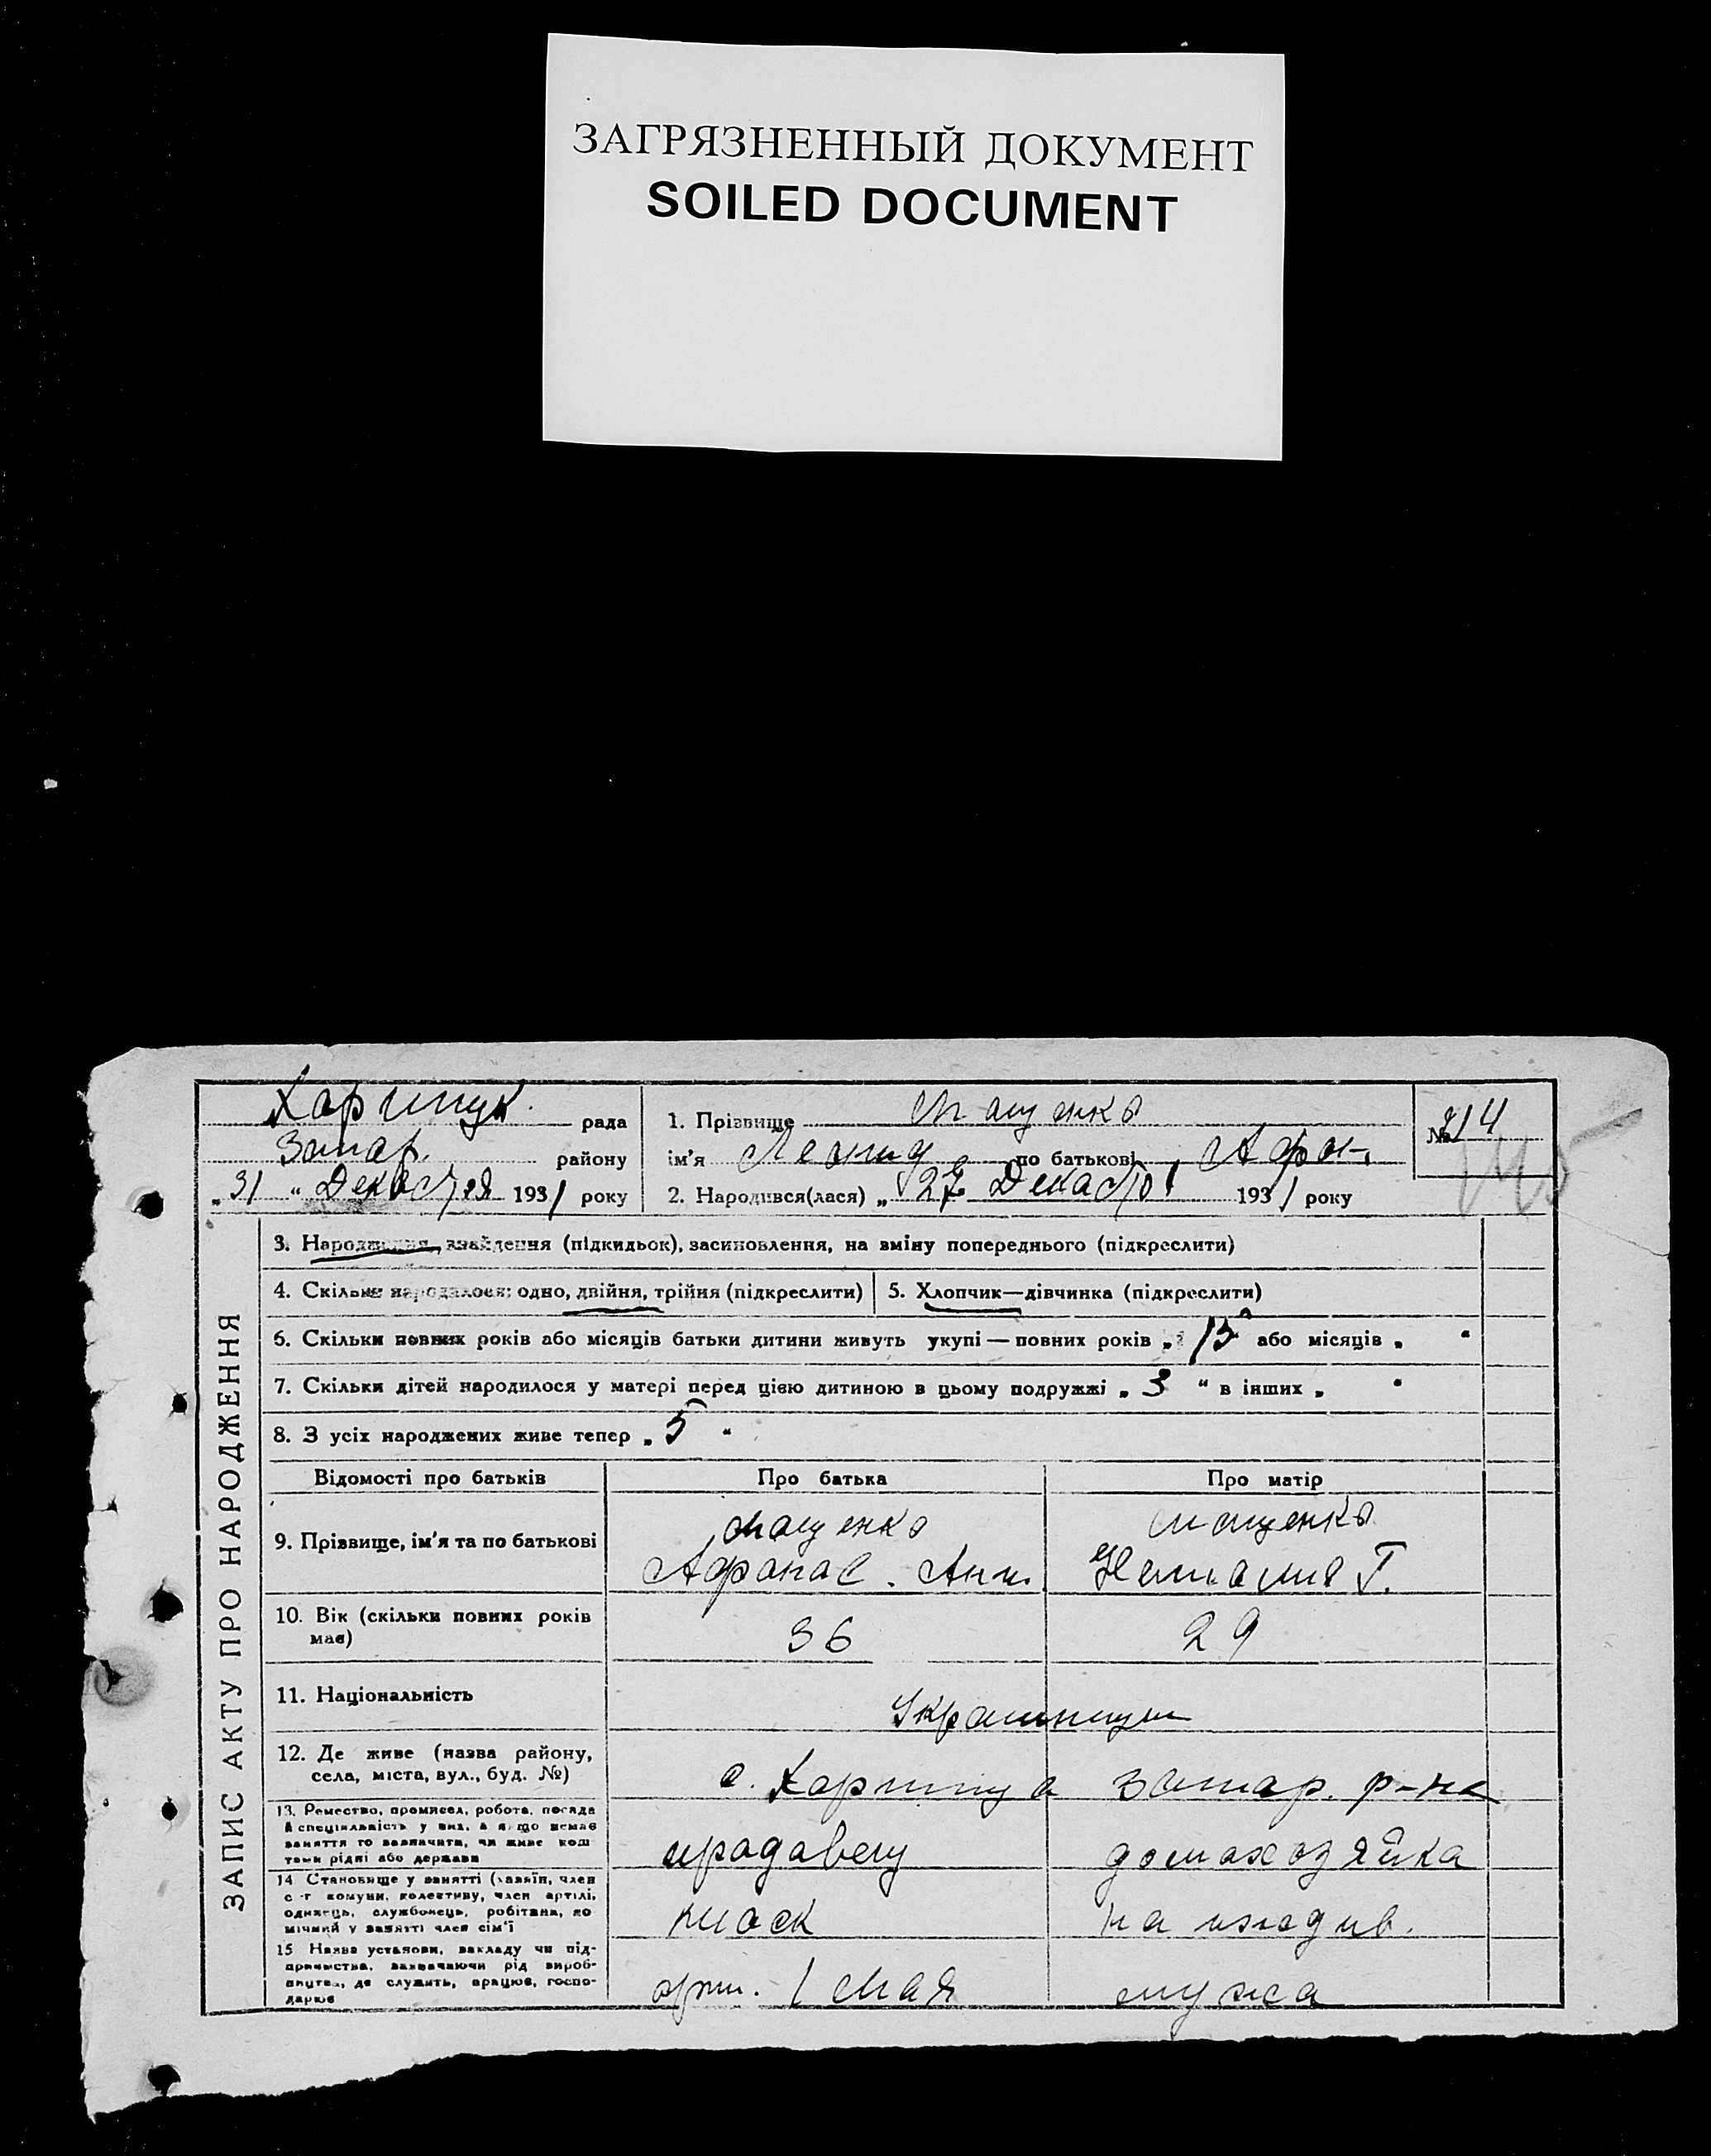 ЗАГРЯЗНЕННЫЙ ДОКУМЕНТ
SOILED DOCUMENT
ЗАПИС АКТУ ПРО НАРОДЖЕННЯ
рада
району
„31“ Декабря 1931 року
1. Прізвище Мащенко
ім'я Леонид по батькові Афан.
2. Народився(лася) „27 Декабря 1931 року
№ 214
3. Народження, знайдення (підкидьок), засиновлення, на вміну попереднього (підкреслити)
4. Скільки народилося: одно, двійня, трійня (підкреслити)
5. Хлопчик—дівчинка (підкреслити)
6. Скільки повних років або місяців батьки дитини живуть укупі — повних років „ 13 або місяців „ “
7. Скільки дітей народилося у матері перед цією дитиною в цьому подружжі „ 3 “ в інших „ “
8. З усіх народжених живе тепер „ 5 “
Відомості про батьків
Про батька
Про матір
9. Прізвище, ім'я та по батькові
Мащенко
Афанас. Ант.
Мащенко
Наталия Г.
10. Вік (скільки повних років має)
36
29
11. Національність
Украинцы
12. Де живе (назва району,
села, міста, вул., буд. №)
р-на
13. Ремество, промисел, робота, посада
й спеціяльність у них, а якщо немає
заняття то зазначити, чи живе кош-
тами рідні або держави
продавец
домахозяйка
14 Становище у занятті (хазяїн, член
с-г комуни, колективу, член артілі,
одинець, службовець, робітник, по-
мічний у занятті член сім'ї
киоск
на иждив.
15 Назва установи, закладу чи під-
приємства, зазначаючи рід вироб-
ництва, де служить, працює, госпо-
дарює
арт. 1 Мая
мужа